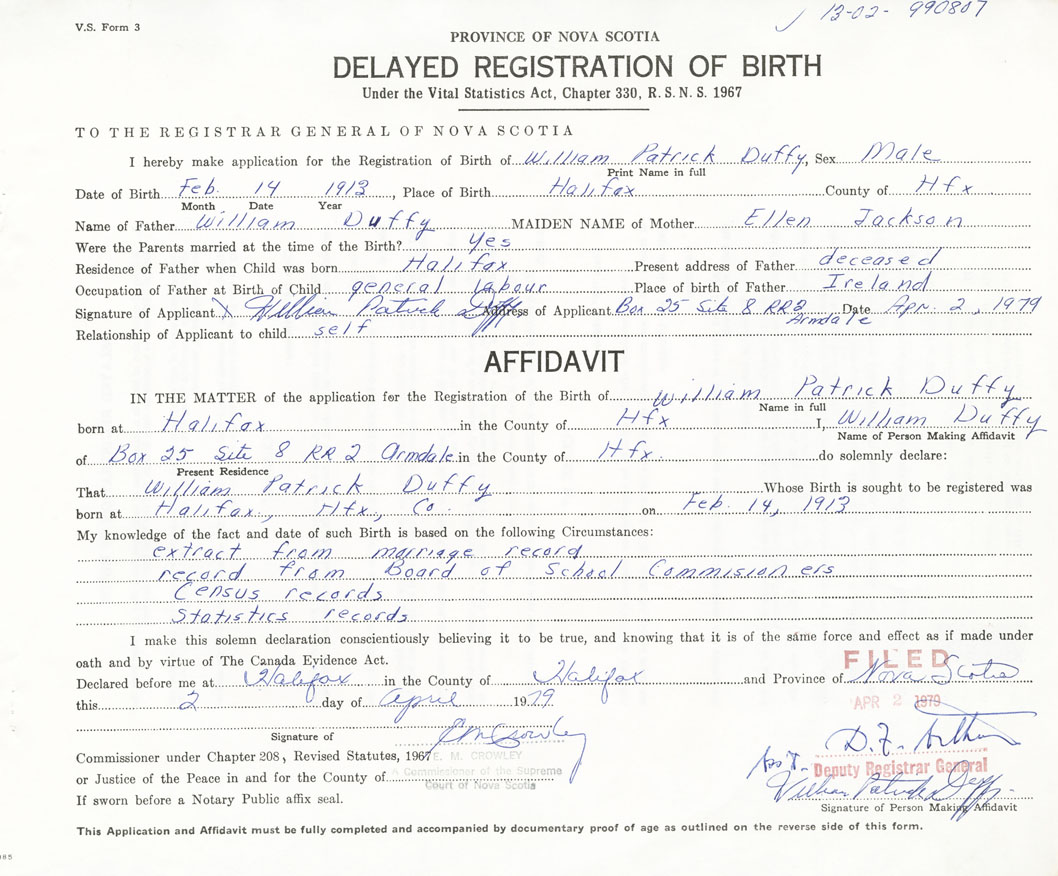 V.S. Form 3
13-02- 990807
PROVINCE OF NOVA SCOTIA
DELAYED REGISTRATION OF BIRTH
Under the Vital Statistics Act, Chapter 330, R. S. N. S. 1967
TO THE REGISTRAR GENERAL OF NOVA SCOTIA
I hereby make application for the Registration of Birth of William Patrick Duffy, Sex Male
Print Name in full
Date of Birth Feb. 14 1913, Place of Birth Halifax County of Hfx
Month Date Year
Name of Father William Duffy MAIDEN NAME of Mother Ellen Jackson
Were the Parents married at the time of the Birth? yes
Residence of Father when Child was born Halifax Present address of Father deceased
Occupation of Father at Birth of Child general labour Place of birth of Father Ireland
Signature of Applicant X William Patrick Duffy Address of Applicant Box 25 Site 8 RR2 Armdale Date Apr. 2, 1979
Relationship of Applicant to child self
AFFIDAVIT
IN THE MATTER of the application for the Registration of the Birth of William Patrick Duffy
Name in full
born at Halifax in the County of Hfx I, William Duffy
Name of Person Making Affidavit
of Box 25 Site 8 RR2 Armdale in the County of Hfx. do solemnly declare:
Present Residence
That William Patrick Duffy Whose Birth is sought to be registered was
born at Halifax, Hfx., Co. on Feb. 14, 1913
My knowledge of the fact and date of such Birth is based on the following Circumstances:
extract from marriage record
record from Board of School Commisioners
Census records
Statistics records
I make this solemn declaration conscientiously believing it to be true, and knowing that it is of the same force and effect as if made under
oath and by virtue of The Canada Evidence Act.
FILED
Declared before me at Halifax in the County of Halifax and Province of Nova Scotia
this 2 day of April 1979
APR 2 1979
Signature of
Commissioner under Chapter 208, Revised Statutes, 1967
E. M. CROWLEY
D. F. Arthur
or Justice of the Peace in and for the County of
A Commissioner of the Supreme
Court of Nova Scotia
Ass't. Deputy Registrar General
William Patrick Duffy
If sworn before a Notary Public affix seal.
Signature of Person Making Affidavit
This Application and Affidavit must be fully completed and accompanied by documentary proof of age as outlined on the reverse side of this form.